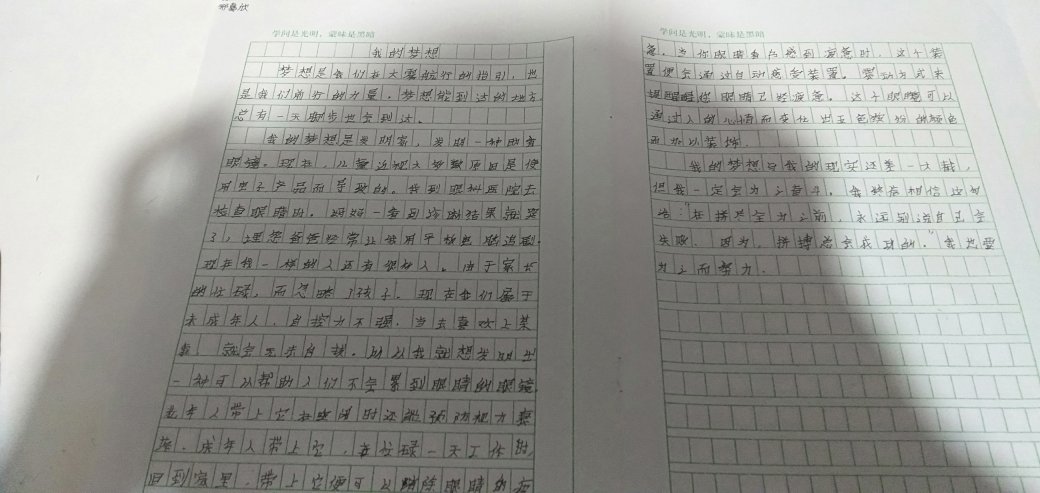 学问是光明，蒙昧是黑暗
我的梦想
梦想是我们在大雾航行的指引，也
是我们前行的力量，梦想能到达的地方，
总有一天脚步也会到达。
我的梦想是发明家，发明一种防
眼镜。现在，儿童近视大多数原因是使
用电子产品而导致的。我到眼科医院去
检查眼睛时，妈妈一看到诊断结果就
了，埋怨爸爸经常让我用平板电脑追剧。
现在我一样的人还有很多人。由于家长
的忙碌，而忽略了孩子。现在我们属于
未成年人，自控力不强，当去喜欢上某
事，就会无法自拔。所以我就想发明出
一种可以帮助人们不会累到眼睛的眼镜，
老年人带上它在 时还能预防视力衰
，成年人带上它，在忙碌一天工作时，
回到家里，带上它便可以消除眼睛的疲
学问是光明，蒙昧是黑暗
惫。当你眼睛有点感到疲惫时，这个装
置便会通过自动感官装置，震动方式来
提醒你眼睛已经疲惫。这个眼睛可以
通过人的心情而变化出五色缤纷的颜色
而加以装饰。
我的梦想与我的现实还差一大截，
但我一定会为之奋斗。我始终相信这句
话：“在拼尽全力之前，永远别说自己会
失败，因为，拼搏总会成功的。”我总要
为之而努力。